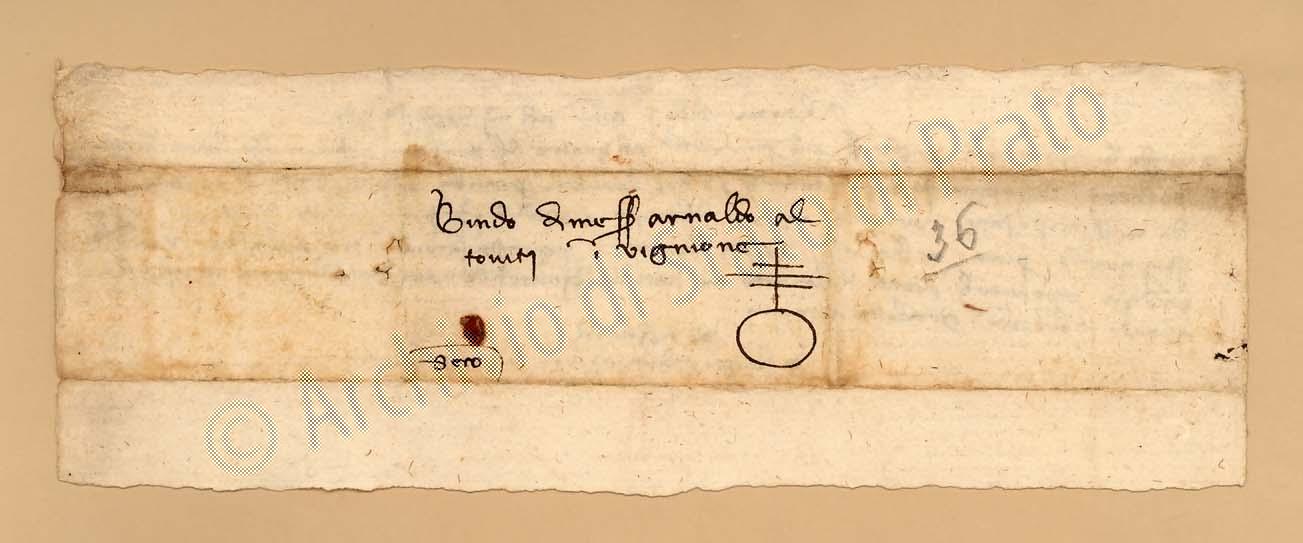 Bindo di mess arnaldo al
toviti i vignone
36
dero
© Archivio di Stato di Prato